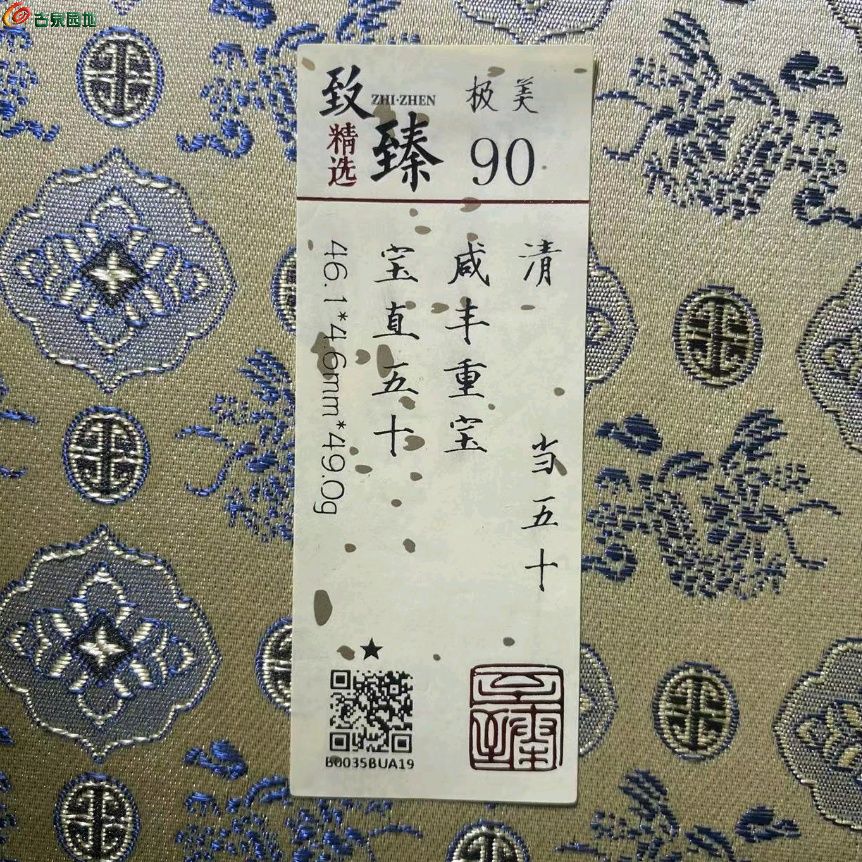 古泉园地
致臻
ZHI·ZHEN
精选
极美
90
清 当五十
咸丰重宝
宝直五十
46.1*4.6mm*49.0g
B0035BUA19